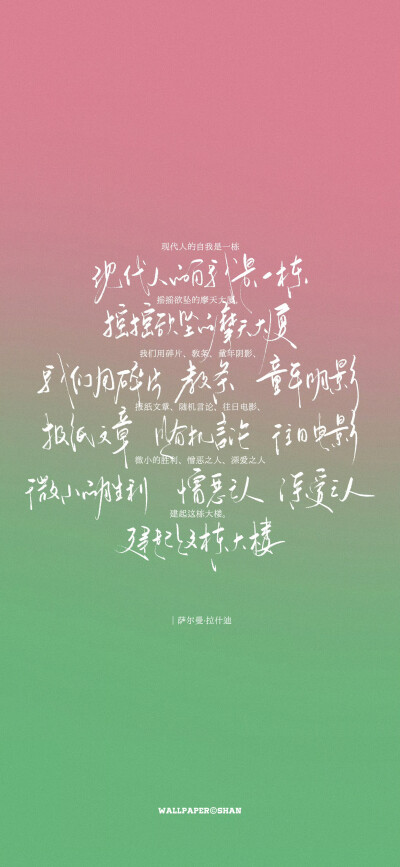 现代人的自我是一栋
现代人的自我是一栋
摇摇欲坠的摩天大厦，
摇摇欲坠的摩天大厦
我们用碎片、教条、童年阴影、
我们用碎片 教条 童年阴影
报纸文章、随机言论、往日电影、
报纸文章 随机言论 往日电影
微小的胜利、憎恶之人、深爱之人
微小的胜利 憎恶之人 深爱之人
建起这栋大楼。
建起这栋大楼
|萨尔曼·拉什迪
WALLPAPER©SHAN